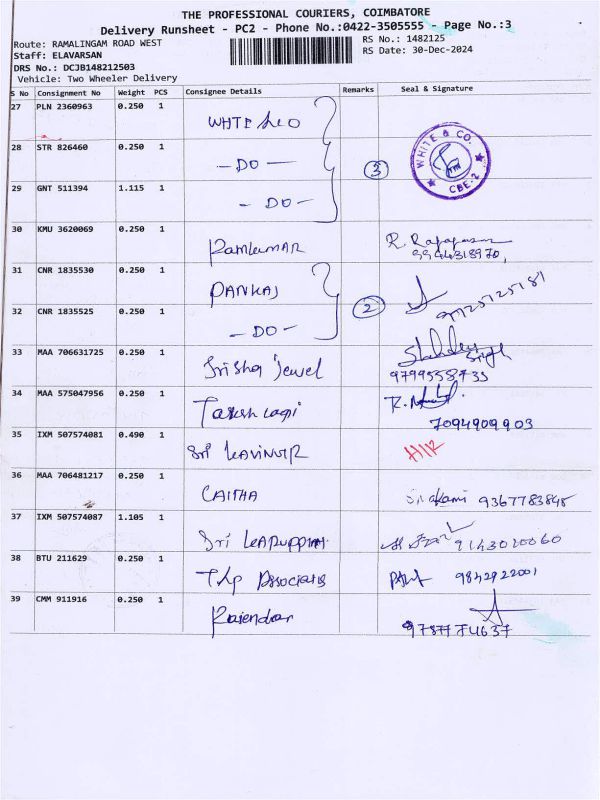 THE PROFESSIONAL COURIERS, COIMBATORE
Delivery Runsheet - PC2 - Phone No.:0422-3505555 - Page No.:3
Route: RAMALINGAM ROAD WEST
RS No.: 1482125
Staff: ELAVARSAN
RS Date: 30-Dec-2024
DRS No.: DCJB148212503
Vehicle: Two Wheeler Delivery
S No Consignment No Weight PCS Consignee Details Remarks Seal & Signature
27 PLN 2360963 0.250 1 WHITE &CO
28 STR 826460 0.250 1 -DO- 3 WHITE & CO. CBE-2
29 GNT 511394 1.115 1 -DO-
30 KMU 3620069 0.250 1 Ramkumar 9944318970,
31 CNR 1835530 0.250 1 PANKAJ 9725125181
32 CNR 1835525 0.250 1 -DO- 2
33 MAA 706631725 0.250 1 Srisha Jewel
34 MAA 575047956 0.250 1 7094909903
35 IXM 507574081 0.490 1 Sri
36 MAA 706481217 0.250 1 9367783848
37 IXM 507574087 1.105 1 Sri 9143020060
38 BTU 211629 0.250 1 Associates 9842922001
39 CMM 911916 0.250 1 Rajendar